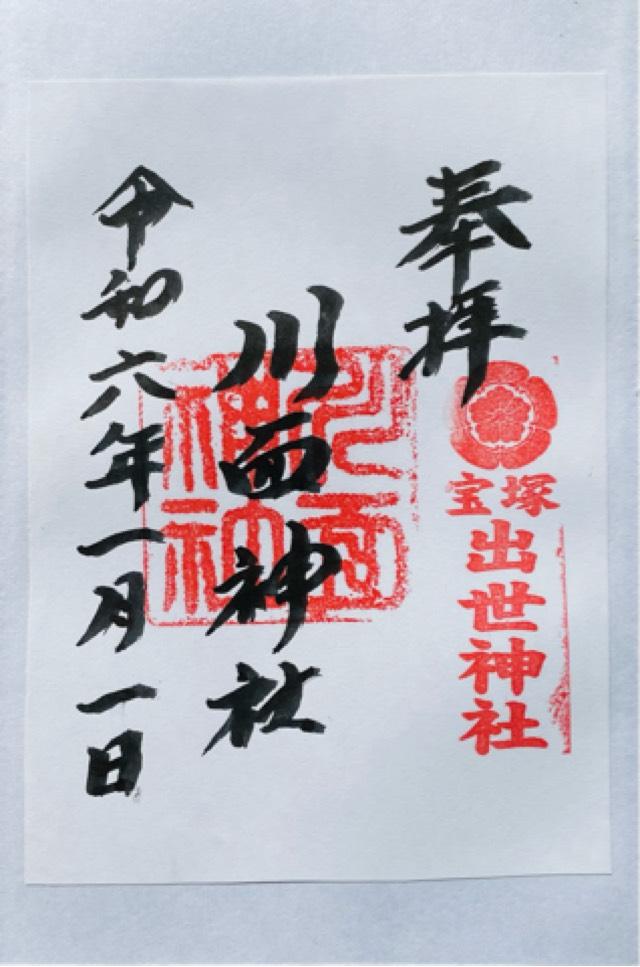 奉拝
宝塚
出世神社
川面神社
令和六年一月一日